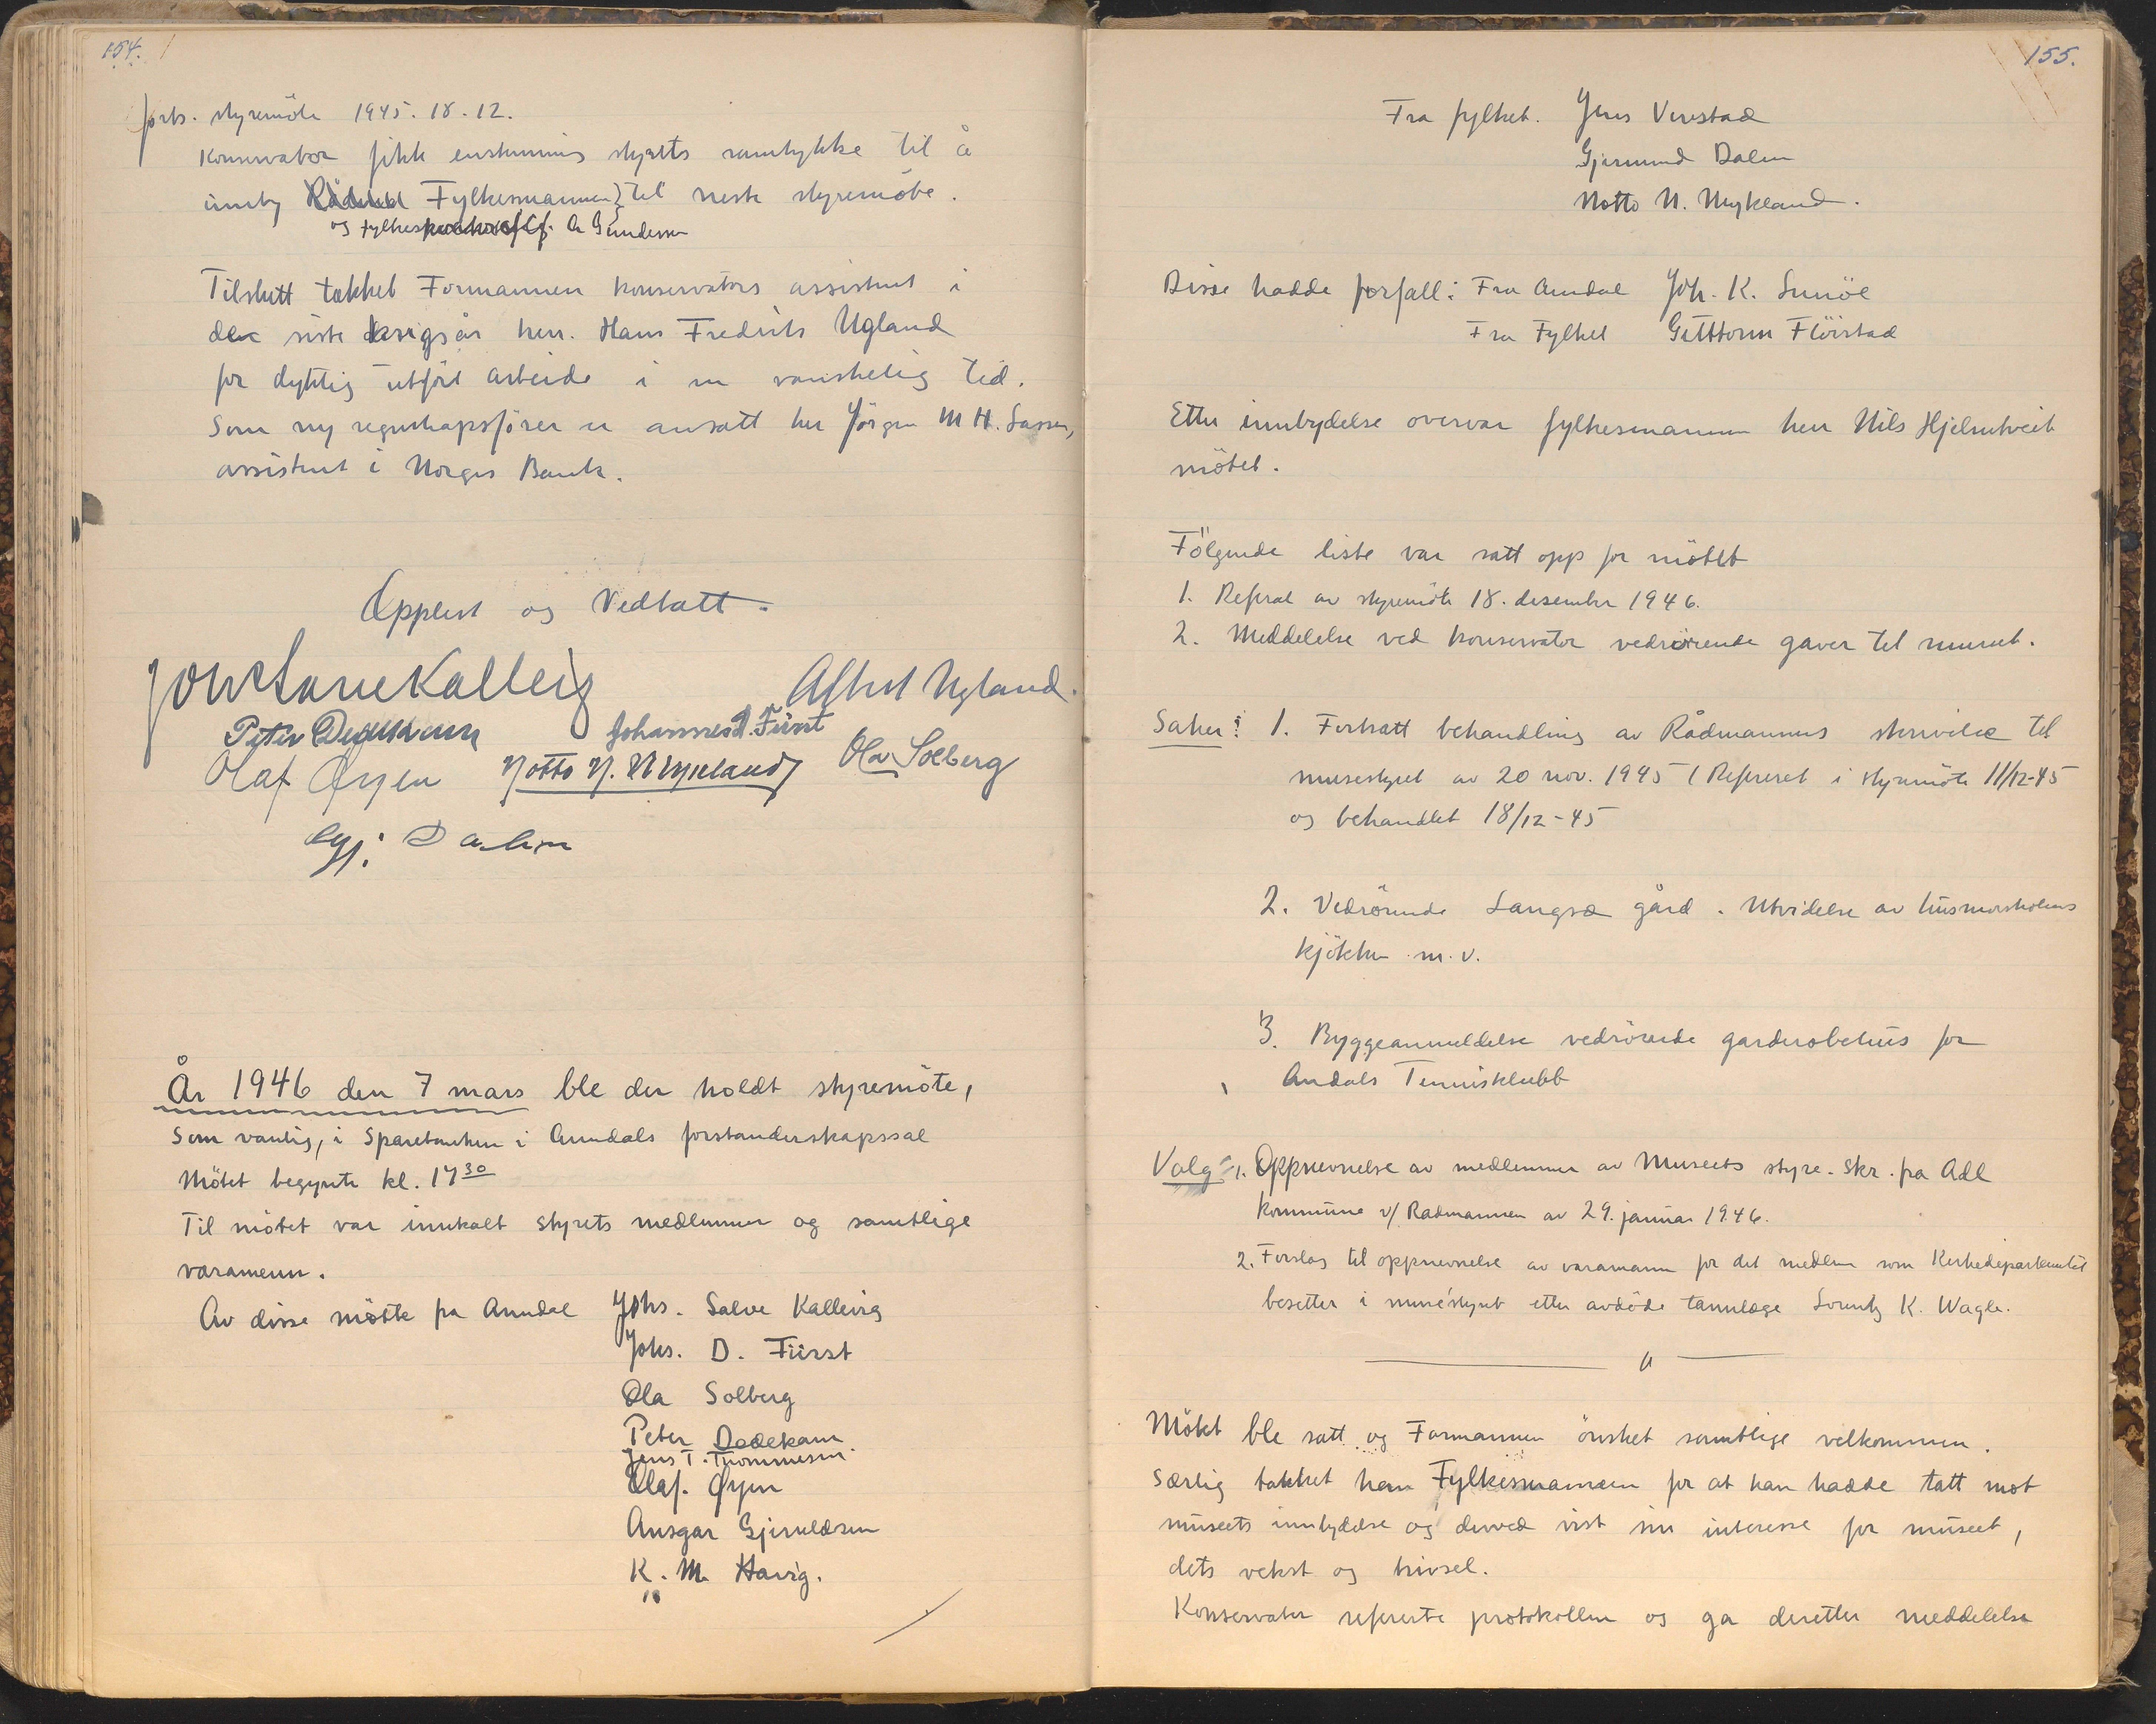 154.
forts. styremöte 1945. 18. 12.
Konservator fikk enstemmig styrets samtykke til å
innby Fylkesmannen til neste styremöte.
og Fylkes A Gundersen
Tilslutt takket Formannen konservators assistent i
de siste krigsår herr. Hans Fredrik Ugland
for dyktig utfört arbeide i en vanskelig tid.
Som ny regnskapsförer er ansatt herr Jörgen M H. Lassen,
assistent i Norges Bank.
Opplest og Vedtatt.
Johs Salve Kallevig
Alfred Ugland.
Peter Dedekam
Johannes D. Fürst
Olaf Øyen
Notto N. Mykland
Ola Solberg
Gj. Dalen
År 1946 den 7 mars ble der holdt styremöte,
Som vanlig, i Sparebanken i Arendals forstanderskapssal
Mötet begynte kl. 17 30
Til mötet var innkalt styrets medlemmer og samtlige
varamenn.
Av disse mötte fra Arendal Johs. Salve Kallevig
Johs. D. Fürst
Ola Solberg
Peter Dedekam
Jens T. Thommesen
Olaf. Øyen
Ansgar Gjerulдsen
K. M. Havig.
155.
Fra fylket. Jens Vevstad
Gjermund Dalen
Notto N. Mykland.
Disse hadde forfall: Fra Arendal Joh. K.
Fra Fylket Guttorm Flöistad
Etter innbydelse overvar fylkesmannen herr Nils Hjelmtveit
mötet.
Fölgende liste var satt opp for mötet
1. Referat av styremöte 18. desember 1946.
2. Meddelelse ved konservator vedrörende gaver til museet.
Saker: 1. Fortsatt behandling av Rådmannens skrivelse til
musestyret av 20 nov. 1945 (Referert i styremöte 11/12-45
og behandlet 18/12-45
2. Vedrörende Langsæ gård. Utvidelse av husmorskolens
kjökken m.v.
3. Byggeanmeldelse vedrörende garderobehus for
Arendals Tennisklubb
Valg: 1. Oppnevnelse av medlemmer av Museets styre. Skr. fra Adl
kommune v/ Rådmannen av 29. januar 1946.
2. Forslag til oppnevnelse av varamann for det medlem som Kirkedepartementet
besetter i musestyret etter avdöde tannlæge Lorentz K. Wagle.
Mötet ble satt og Formannen önsket samtlige velkommen.
Særlig takket han Fylkesmannen for at han hadde tatt mot
museets innbydelse og derved vist sin interesse for museet,
dets vekst og trivsel.
Konservator refererte protokollen og ga deretter meddelelse